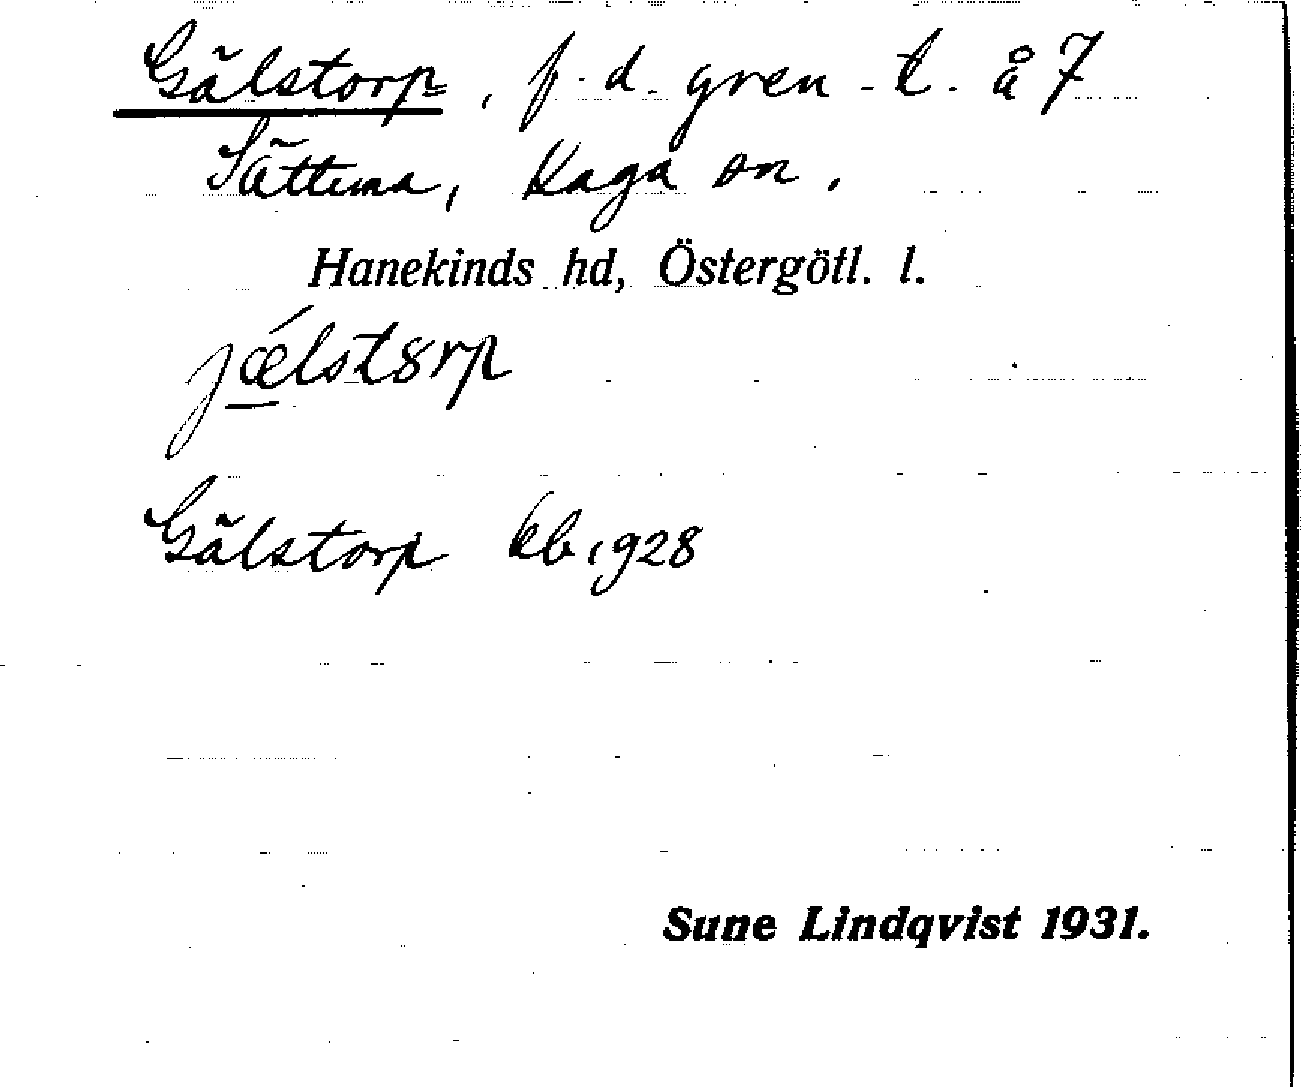 Gälstorp, f.d. gren. t. å 7
Sättuna, Kaga sn.
Hanekinds hd, Östergötl. l.
jǽlstȣrp
Gälstorp kb 1928
Sune Lindqvist 1931.